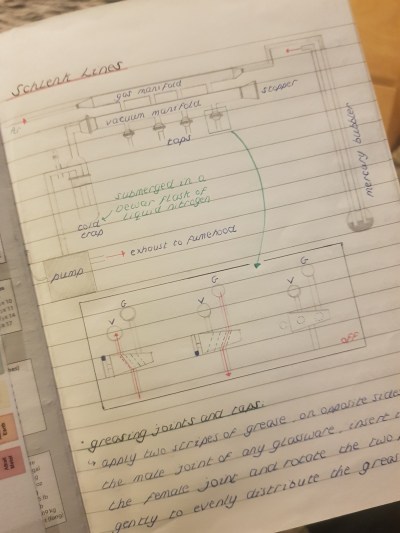 Schlenk Lines
gas manifold
vacuum manifold
stopper
taps
mercury bubbler
submerged in a
Dewar flask of
liquid nitrogen
cold
trap
pump
exhaust to fumehood
G
V
G
V
G
V
OFF
• greasing joints and taps:
↳ apply two stripes of grease, on opposite side
the male joint of any glassware, insert
the female joint and rotate the two
gently to evenly distribute the greas